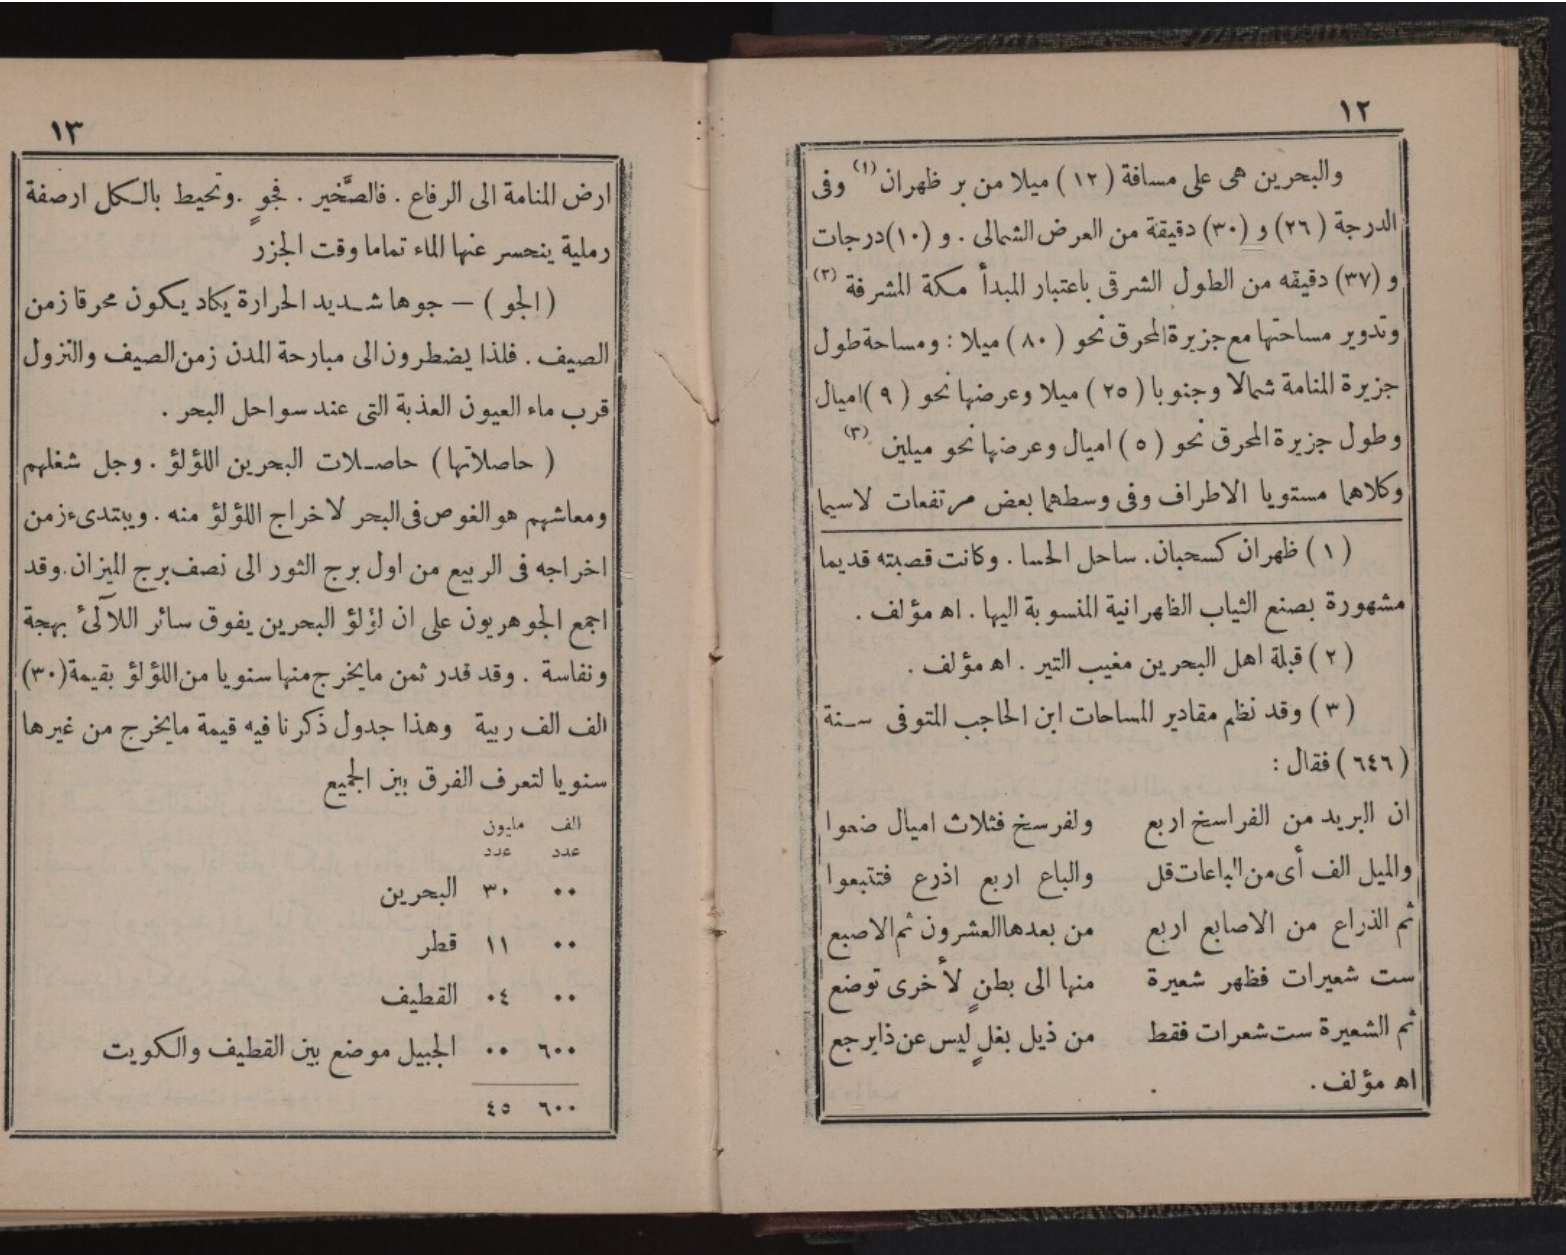 ١٢
والبحرين هى على مسافة (١٢) ميلا من بر ظهران (١) وفى
الدرجة (٢٦) و (٣٠) دقيقة من العرض الشمالى . و (١٠) درجات
و (٣٧) دقيقه من الطول الشرقى باعتبار المبدأ مكة المشرفة (٢)
وتدوير مساحتها مع جزيرة المحرق نحو (٨٠) ميلا : ومساحة طول
جزيرة المنامة شمالا وجنوبا (٢٥) ميلا وعرضها نحو (٩) اميال
وطول جزيرة المحرق نحو (٥) اميال وعرضها نحو ميلين (٣)
وكلاهما مستويا الاطراف وفى وسطهما بعض مرتفعات لاسيما
(١) ظهران كسحبان. ساحل الحسا . وكانت قصبته قديما
مشهورة بصنع الثياب الظهرانية المنسوبة اليها . اه مؤلف .
(٢) قبلة اهل البحرين مغيب التير . اه مؤلف .
(٣) وقد نظم مقادير المساحات ابن الحاجب المتوفى سنة
(٦٤٦) فقال :
ان البريد من الفراسخ اربع ولفرسخ فثلاث اميال ضعوا
والميل الف أى من الباعات قل والباع اربع اذرع فتتبعوا
ثم الذراع من الاصابع اربع من بعدها العشرون ثم الاصبع
ست شعيرات فظهر شعيرة منها الى بطنٍ لأخرى توضع
ثم الشعيرة ست شعرات فقط من ذيل بغلٍ ليس عن ذا يرجع
اه مؤلف .
١٣
ارض المنامة الى الرفاع . فالصَّخير . فجوٍ . وتحيط بالكل ارصفة
رملية ينحسر عنها الماء تماما وقت الجزر
(الجو) — جوها شديد الحرارة يكاد يكون محرقا زمن
الصيف . فلذا يضطرون الى مبارحة المدن زمن الصيف والنزول
قرب ماء العيون العذبة التى عند سواحل البحر .
(حاصلاتها) حاصلات البحرين اللؤلؤ . وجل شغلهم
ومعاشهم هو الغوص فى البحر لاخراج اللؤلؤ منه . ويبتدىء زمن
اخراجه فى الربيع من اول برج الثور الى نصف برج الميزان . وقد
اجمع الجوهريون على ان لؤلؤ البحرين يفوق سائر اللآلئ بهجة
ونفاسة . وقد قدر ثمن مايخرج منها سنويا من اللؤلؤ بقيمة (٣٠)
الف الف ربية وهذا جدول ذكرنا فيه قيمة مايخرج من غيرها
سنويا لتعرف الفرق بين الجميع
الف مليون
عدد عدد
٠٠ ٣٠ البحرين
٠٠ ١١ قطر
٠٠ ٠٤ القطيف
٦٠٠ ٠٠ الجبيل موضع بين القطيف والكويت
٦٠٠ ٤٥